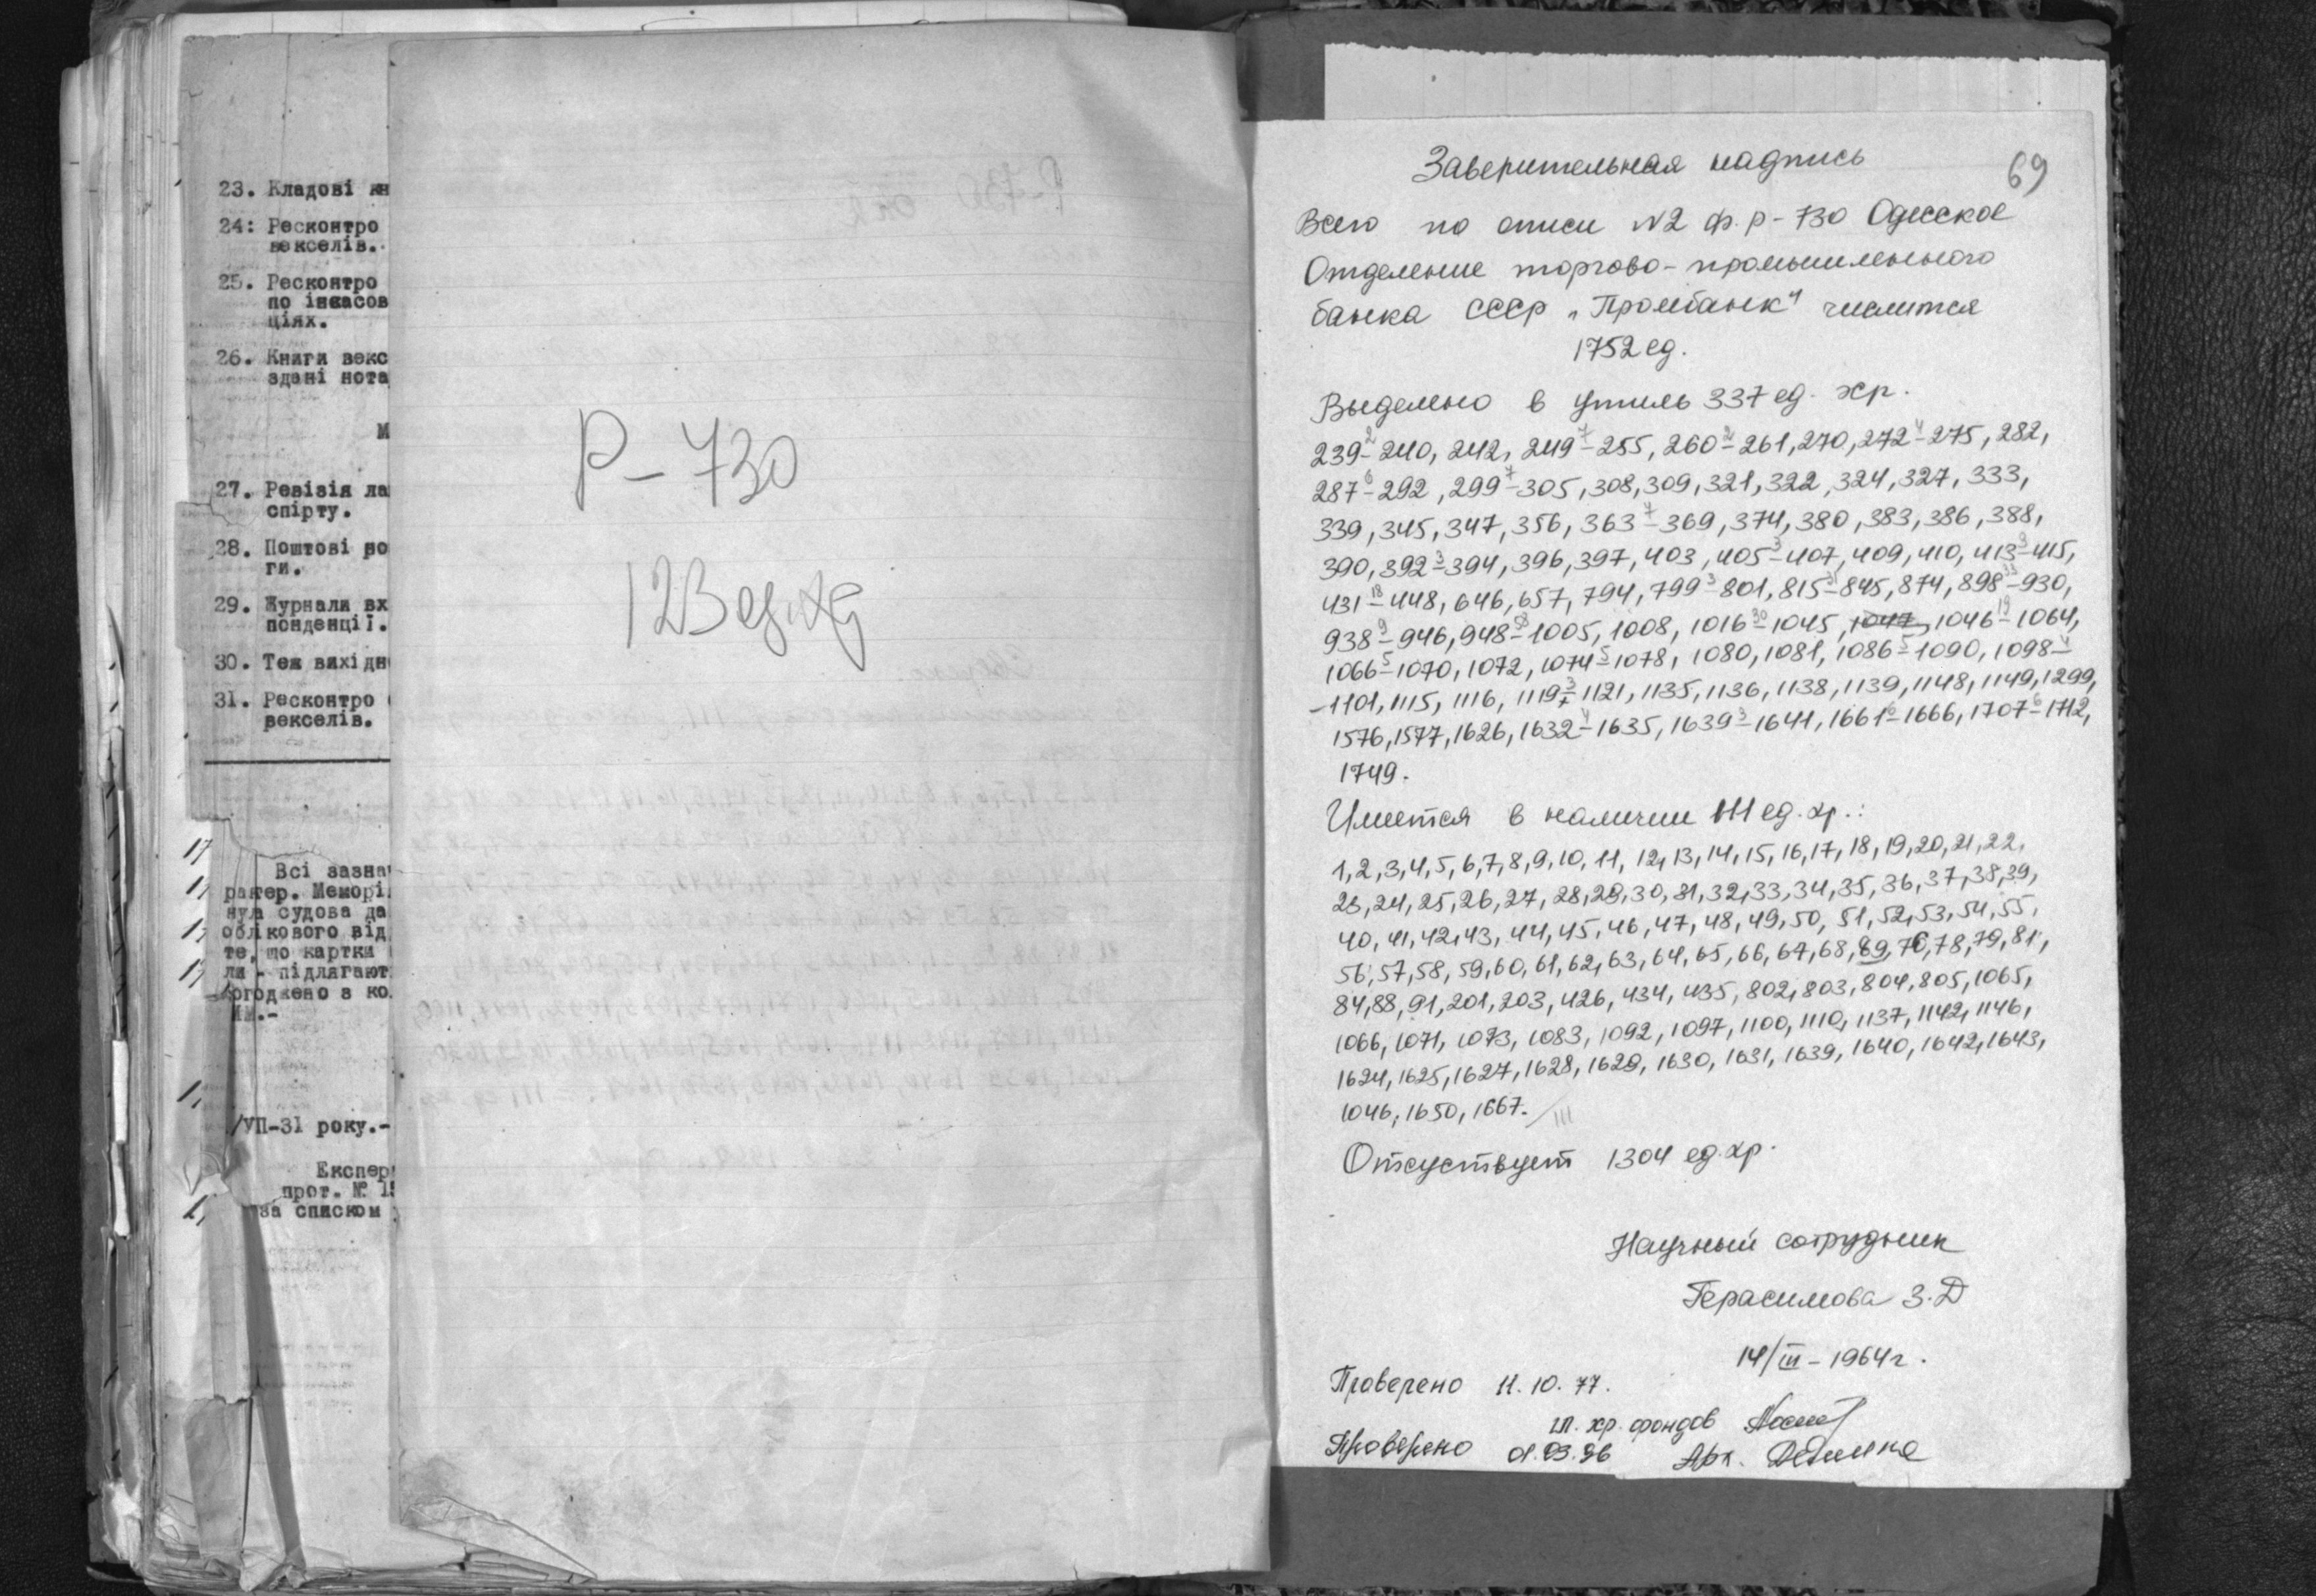 23. Кладові кн
24: Ресконтро
векселів.
25. Ресконтро
по інкасов
ціях.
26. Книги векс
здані нота
М
27. Ревізія ла
спірту.
28. Поштові ро
ги.
29. Журнали вх
понденції.
30. Теж вихідн
31. Ресконтро
векселів.
Всі зазна
рактер. Меморі
нула судова да
облікового від
те, що картки
ли - підлягают
огоджено з ко
/УП-31 року.-
Експер
прот. № 15
за списком
Р-730
123 ед.хр
69
Заверительная надпись
Всего по описи N2 ф. р-730 Одесское
Отделение торгово-промышленного
банка СССР „Промбанк" числится
1752 ед.
Выделено в утиль 337 ед. хр.
239-240, 242, 249-255, 260-261, 270, 272-275, 282,
287-292, 299-305, 308, 309, 321, 322, 324, 327, 333,
339, 345, 347, 356, 363-369, 374, 380, 383, 386, 388,
390, 392-394, 396, 397, 403, 405-407, 409, 410, 413-415,
431-448, 646, 657, 794, 799-801, 815-845, 874, 898-930,
938-946, 948-1005, 1008, 1016-1045, 1047, 1046-1064,
1066-1070, 1072, 1074-1078, 1080, 1081, 1086-1090, 1098-
-1101, 1115, 1116, 1119-1121, 1135, 1136, 1138, 1139, 1148, 1149, 1299,
1576, 1577, 1626, 1632-1635, 1639-1641, 1661-1666, 1707-1712,
1749.
Имеется в наличии 111 ед. хр.:
1, 2, 3, 4, 5, 6, 7, 8, 9, 10, 11, 12, 13, 14, 15, 16, 17, 18, 19, 20, 21, 22,
23, 24, 25, 26, 27, 28, 29, 30, 31, 32, 33, 34, 35, 36, 37, 38, 39,
40, 41, 42, 43, 44, 45, 46, 47, 48, 49, 50, 51, 52, 53, 54, 55,
56, 57, 58, 59, 60, 61, 62, 63, 64, 65, 66, 67, 68, 69, 76, 78, 79, 81,
84, 88, 91, 201, 203, 426, 434, 435, 802, 803, 804, 805, 1065,
1066, 1071, 1073, 1083, 1092, 1097, 1100, 1110, 1137, 1142, 1146,
1624, 1625, 1627, 1628, 1629, 1630, 1631, 1639, 1640, 1642, 1643,
1046, 1650, 1667. / 111
Отсутствует 1304 ед. хр.
Научный сотрудник
Герасимова З.Д
14/III-1964 г.
Проверено 11. 10. 77.
гл. хр. фондов
Проверено 01.03.96 Арх.